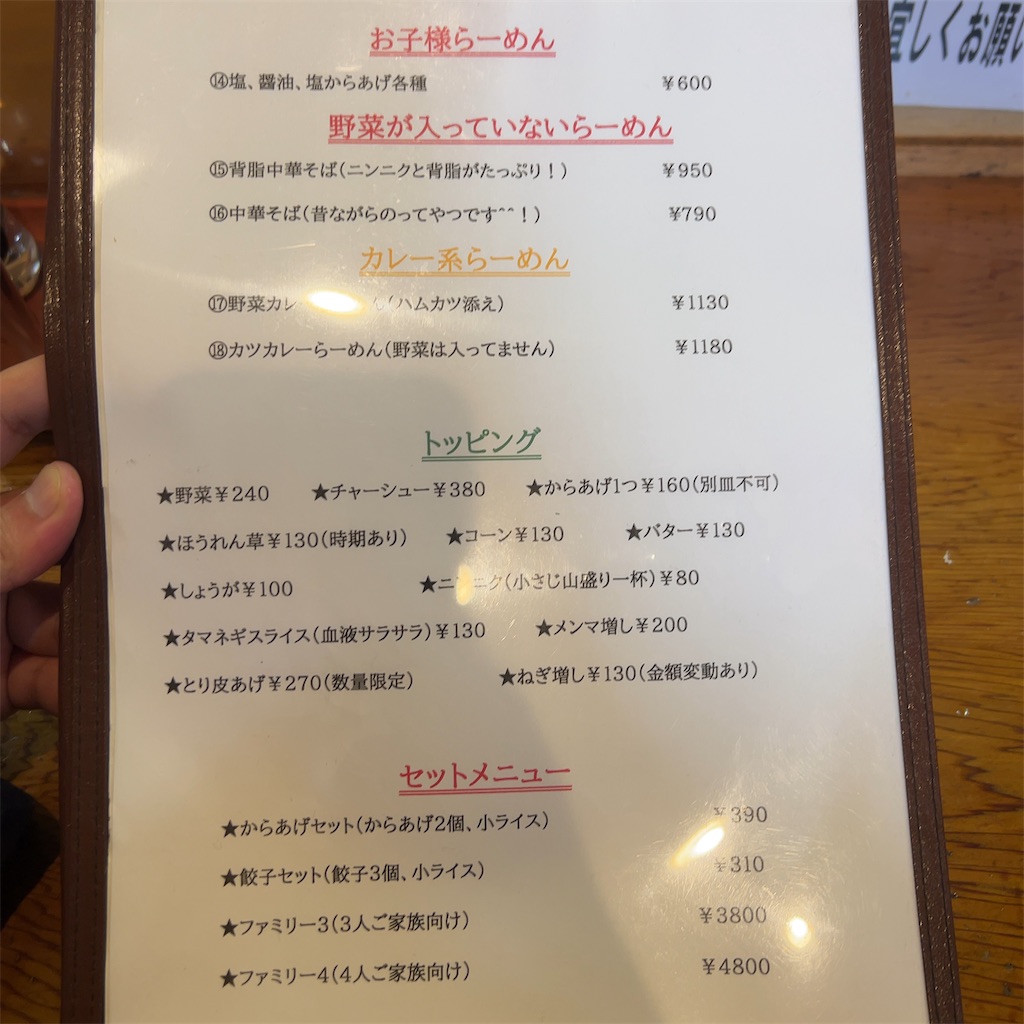 宜しくお願い
お子様らーめん
⑭塩、醤油、塩からあげ各種 ¥600
野菜が入っていないらーめん
⑮背脂中華そば(ニンニクと背脂がたっぷり!) ¥950
⑯中華そば(昔ながらのってやつです^^!) ¥790
カレー系らーめん
⑰野菜カレ ん(ハムカツ添え) ¥1130
⑱カツカレーらーめん(野菜は入ってません) ¥1180
トッピング
★野菜¥240 ★チャーシュー¥380 ★からあげ1つ¥160(別皿不可)
★ほうれん草¥130(時期あり) ★コーン¥130 ★バター¥130
★しょうが¥100 ★ニンニク(小さじ山盛り一杯)¥80
★タマネギスライス(血液サラサラ)¥130 ★メンマ増し¥200
★とり皮あげ¥270(数量限定) ★ねぎ増し¥130(金額変動あり)
セットメニュー
★からあげセット(からあげ2個、小ライス) ¥390
★餃子セット(餃子3個、小ライス) ¥310
★ファミリー3(3人ご家族向け) ¥3800
★ファミリー4(4人ご家族向け) ¥4800